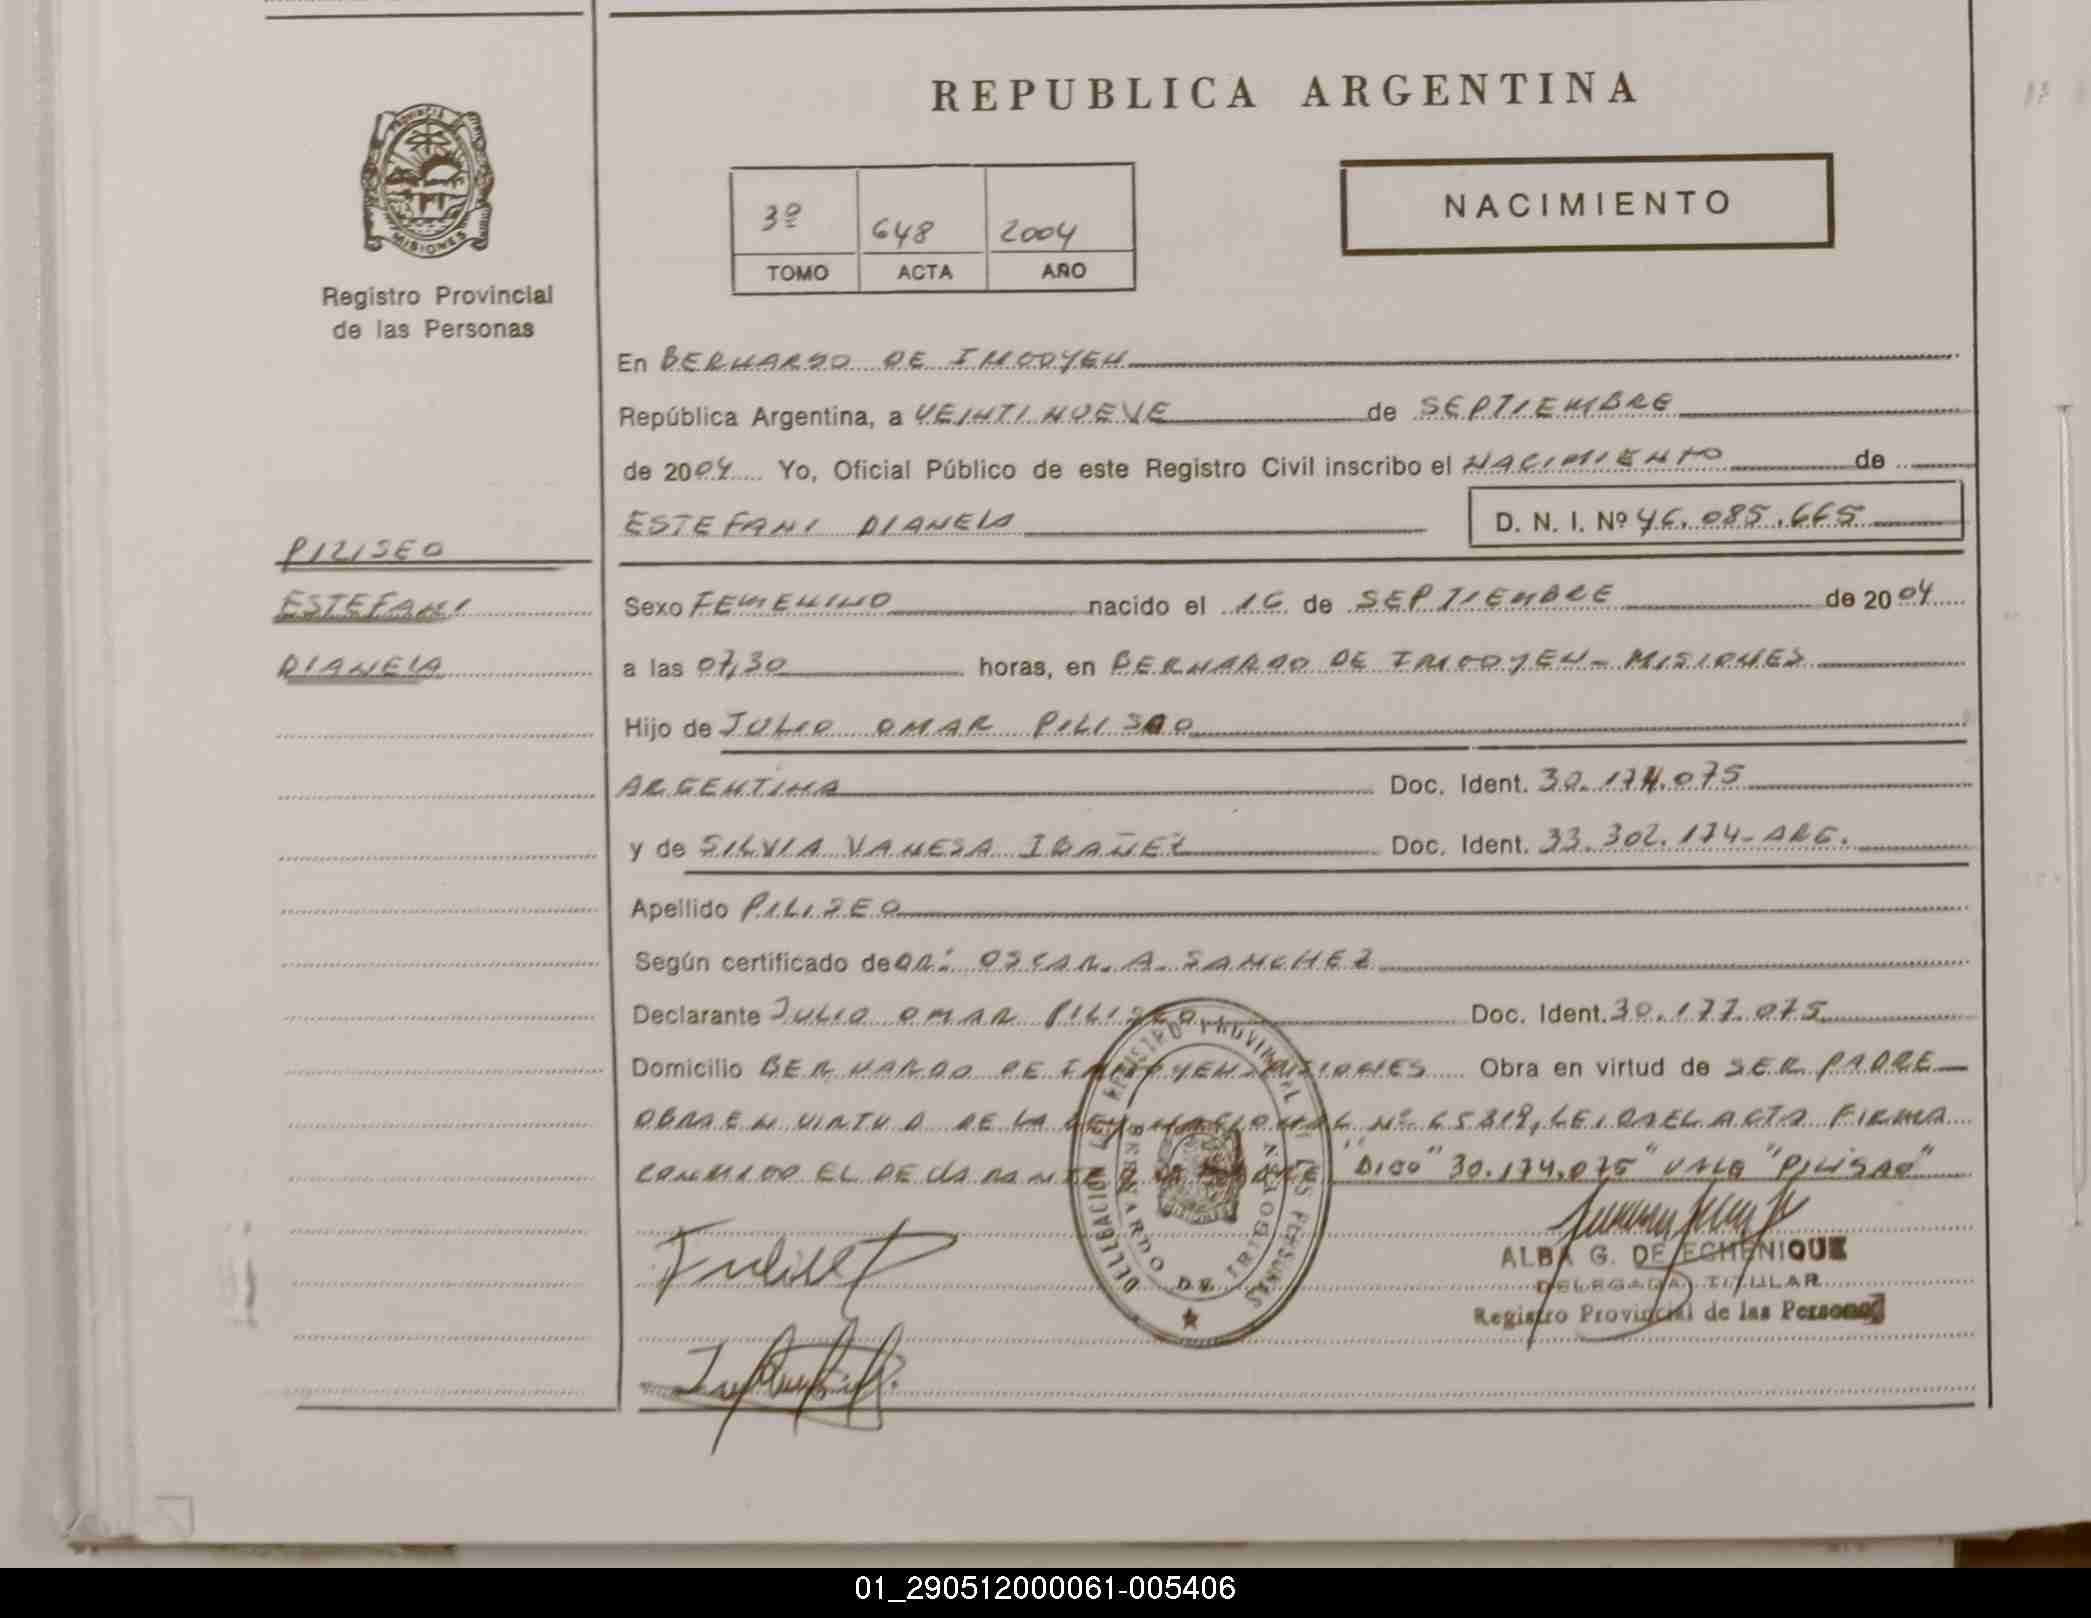 REPUBLICA ARGENTINA
PROVINCIA
MISIONES
Registro Provincial
de las Personas
3º 648 2004
TOMO ACTA AÑO
NACIMIENTO
En BERNARDO DE IRIGOYEN
República Argentina, a VEINTINUEVE de SEPTIEMBRE
de 2004 Yo, Oficial Público de este Registro Civil inscribo el NACIMIENTO de
ESTEFANI DIANELA D. N. I. Nº 46.085.665
PILISEO
ESTEFANI
DIANELA
Sexo FEMENINO nacido el 16 de SEPTIEMBRE de 2004
a las 07,30 horas, en BERNARDO DE IRIGOYEN - MISIONES
Hijo de JULIO OMAR PILISAO
ARGENTINA Doc. Ident. 30.174.075
y de SILVIA VANESA IBAÑEZ Doc. Ident. 33.302.174-ARG.
Apellido PILISEO
Según certificado de DR: OSCAR. A. SANCHEZ
Declarante JULIO OMAR PILISEO Doc. Ident. 30.177.075
Domicilio BERNARDO DE IRIGOYEN-MISIONES Obra en virtud de SER PADRE
OBRA EN VIRTUD DE LA LEY NACIONAL Nº LEIDA EL ACTA FIRMA
CONMIGO EL DECLARANTE "DIGO" 30.174.075" VALE "PILISAO"
DELEGACION DEL REGISTRO PROVINCIAL DE LAS PERSONAS
BERNARDO DE IRIGOYEN
ALBA G. DE ECHENIQUE
DELEGADA TITULAR
Registro Provincial de las Personas
01_290512000061-005406